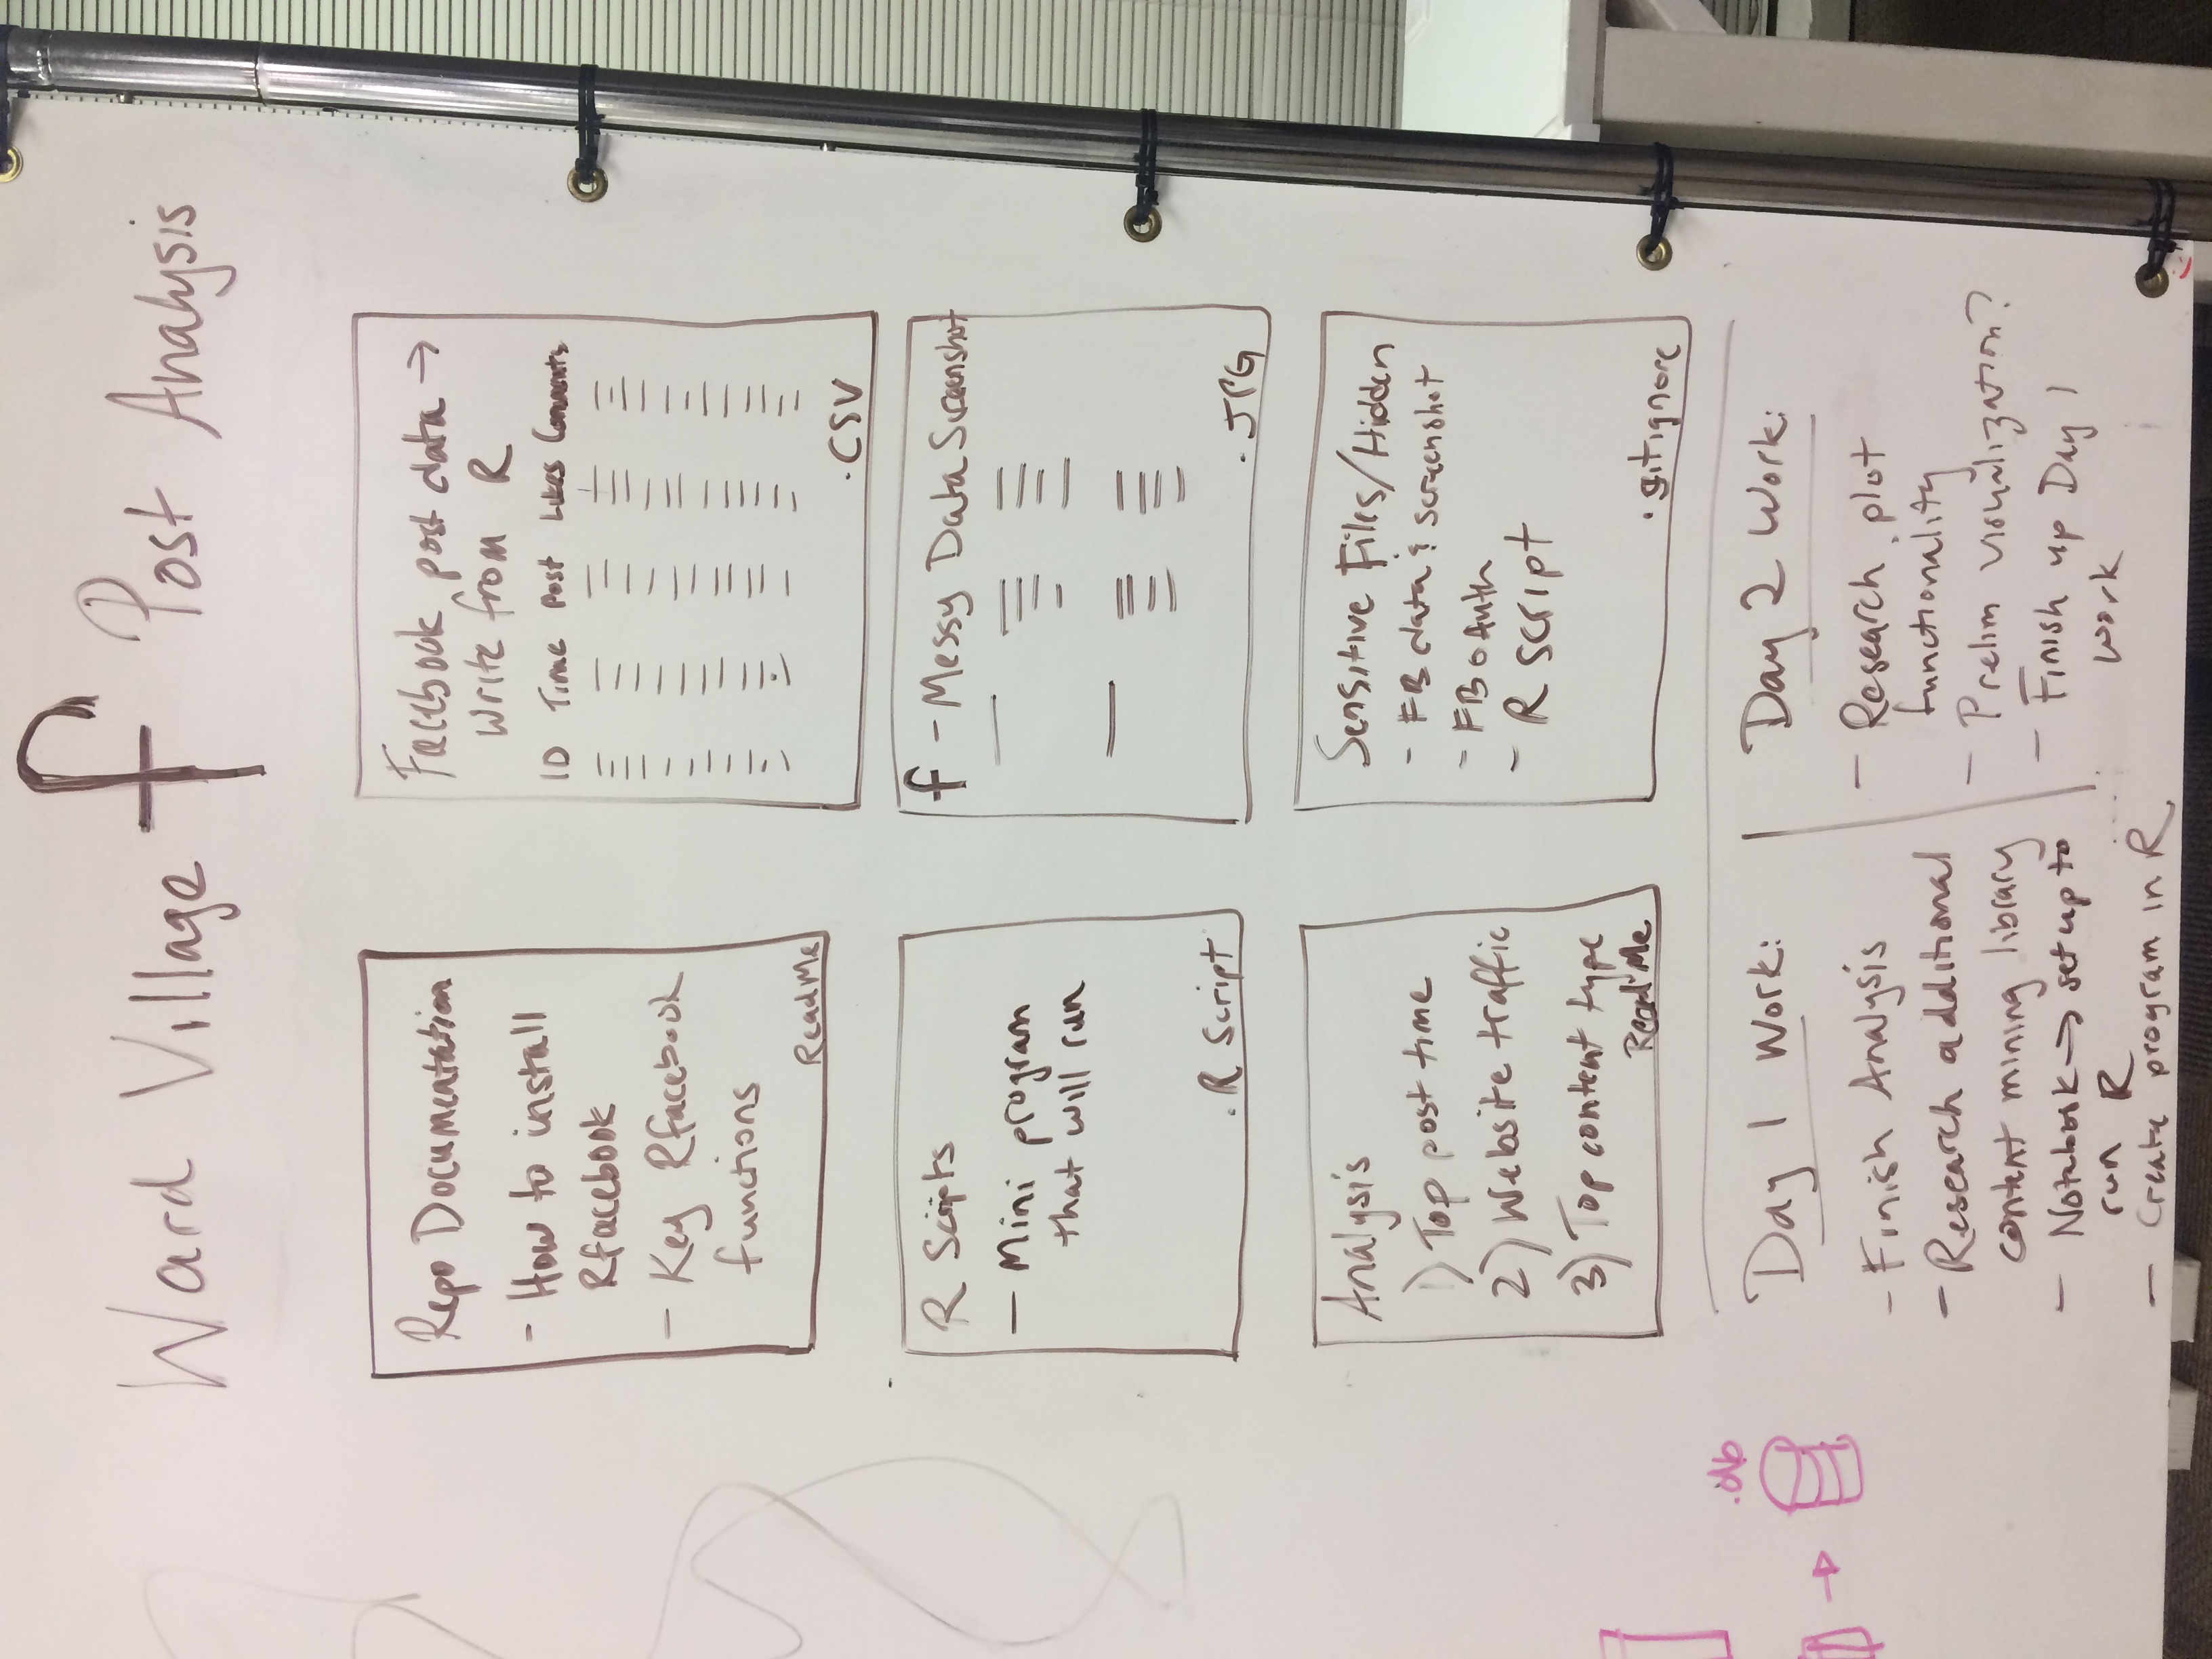 Ward Village f Post Analysis
Repo Documentation
- How to install
Rfacebook
- Key Rfacebook
functions
ReadMe
Facebook post data →
Write from R
ID Time Post Likes Comments
.CSV
R Scripts
- Mini program
that will run
.R Script
f - Messy Data Screenshot
.JPG
Analysis
1) Top post time
2) Website traffic
3) Top content type
ReadMe
Sensitive Files/Hidden
- FB data & screenshot
- FB oAuth
- R script
.gitignore
.db
Day 1 Work:
- Finish Analysis
- Research additional
content mining library
- Notebook → set up to
run R
- Create program in R
Day 2 Work:
- Research plot
functionality
- Prelim visualization?
- Finish up Day 1
work